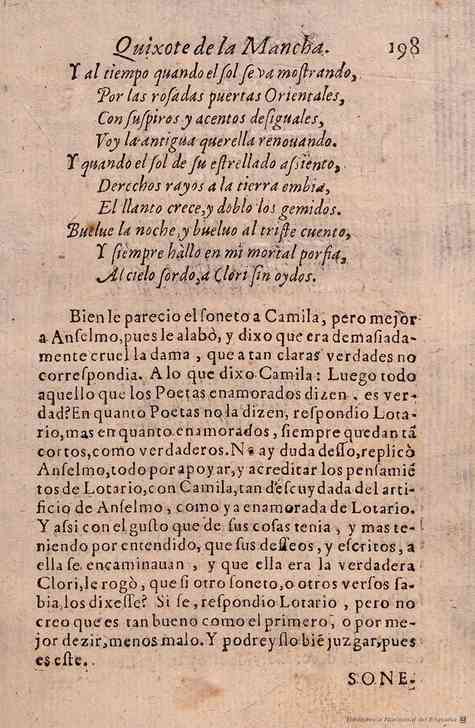 Quixote de la Mancha. 198
Y al tiempo quando el sol se va mostrando,
Por las rosadas puertas Orientales,
Con suspiros y acentos desiguales,
Voy la antigua querella renouando.
Y quando el sol de su estrellado assiento,
Derechos rayos a la tierra embia,
El llanto crece, y doblo los gemidos.
Buelue la noche, y bueluo al triste cuento,
Y siempre hallo en mi mortal porfia,
Al cielo sordo, a Clori sin oydos.
Bien le parecio el soneto a Camila, pero mejor
a Anselmo, pues le alabò, y dixo que era demasiada-
mente cruel la dama, que a tan claras verdades no
correspondia. A lo que dixo Camila: Luego todo
aquello que los Poetas enamorados dizen, es ver-
dad? En quanto Poetas no la dizen, respondio Lota-
rio, mas en quanto enamorados, siempre quedan tã
cortos, como verdaderos. No ay duda desso, replicò
Anselmo, todo por apoyar, y acreditar los pensamiẽ
tos de Lotario, con Camila, tan descuydada del arti-
ficio de Anselmo, como ya enamorada de Lotario.
Y assi con el gusto que de sus cosas tenia, y mas te-
niendo por entendido, que sus desseos, y escritos, a
ella se encaminauan, y que ella era la verdadera
Clori, le rogò, que si otro soneto, o otros versos sa-
bia, los dixesse? Si se, respondio Lotario, pero no
creo que es tan bueno como el primero, o por me-
jor dezir, menos malo. Y podreyslo biẽ juzgar, pues
es este.
SONE-
Biblioteca Nacional de España